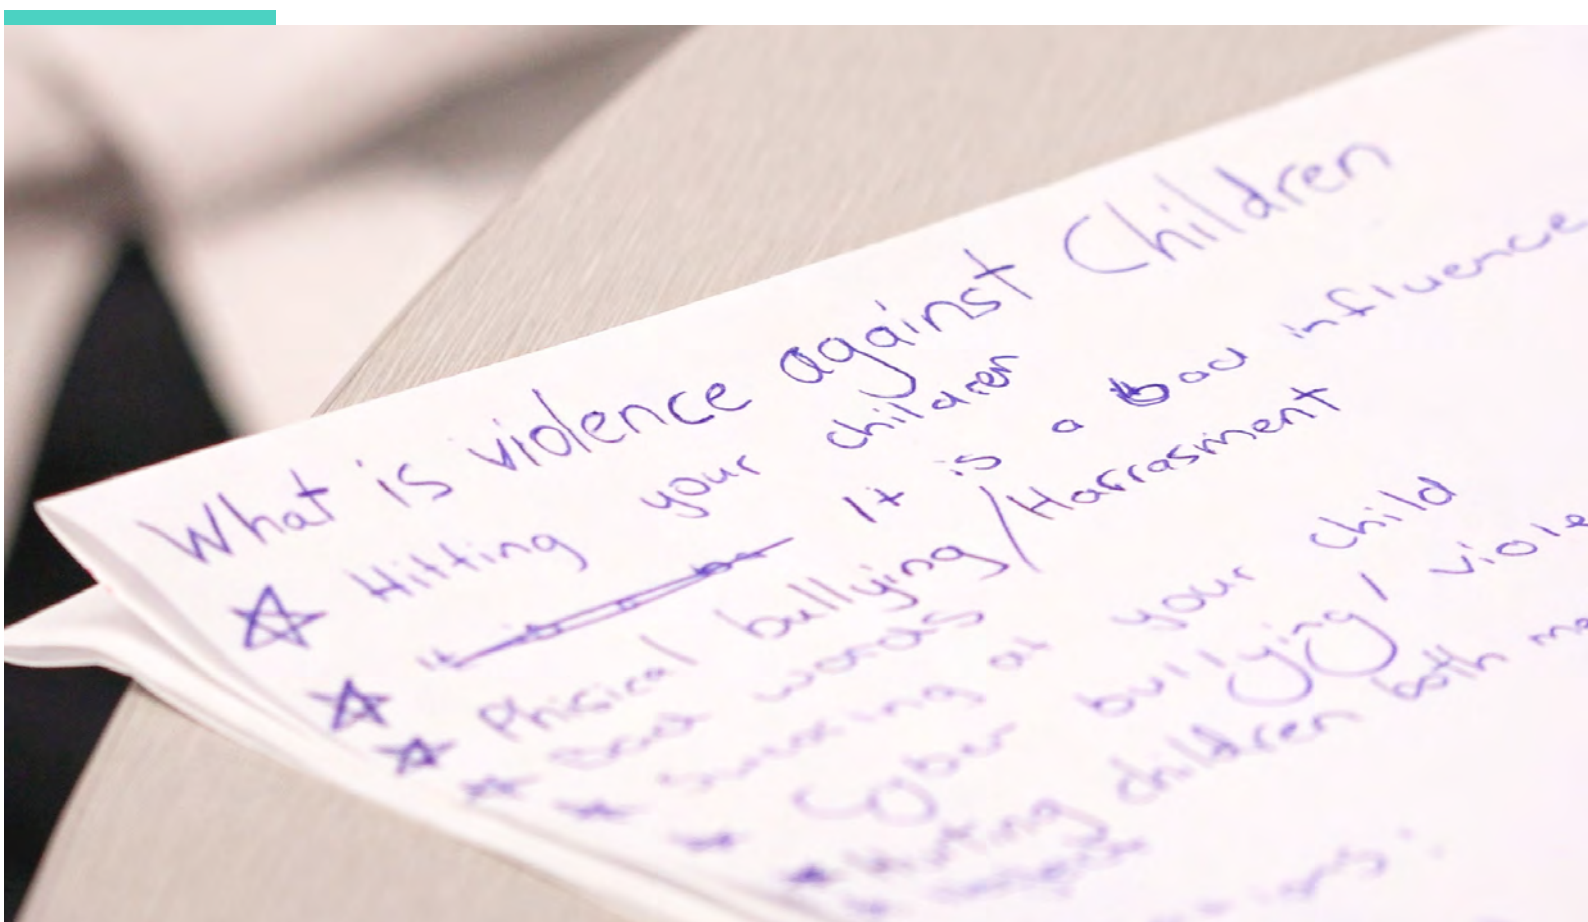 What is violence against Children
Hitting your children
It It is a bad influence
Phisical bullying/Harrasment
bad words
at your child
Cyber bullying/
Hurting children both